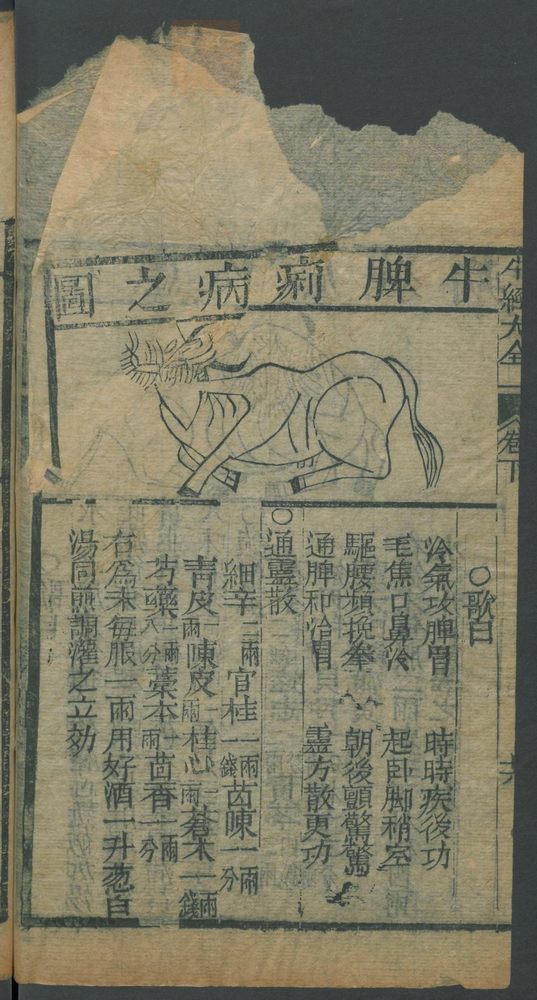 牛經大全
卷下
牛脾痢病之圖
○歌曰
冷氣攻脾胃 時時疾後功
毛焦口鼻冷 起卧脚稍
驅腰頻挽拳 朝後顫驚
通脾和洽胃 靈方散更功
○通靈散
細辛二兩 官桂一兩一錢 茴陳一兩一分
青皮一兩 陳皮一兩 桂心一兩 蒼木一兩一錢
芍藥一兩八分 藁本一兩 茴香一兩一分
右爲末每服二兩用好酒一升葱白
湯同煎調灌之立効